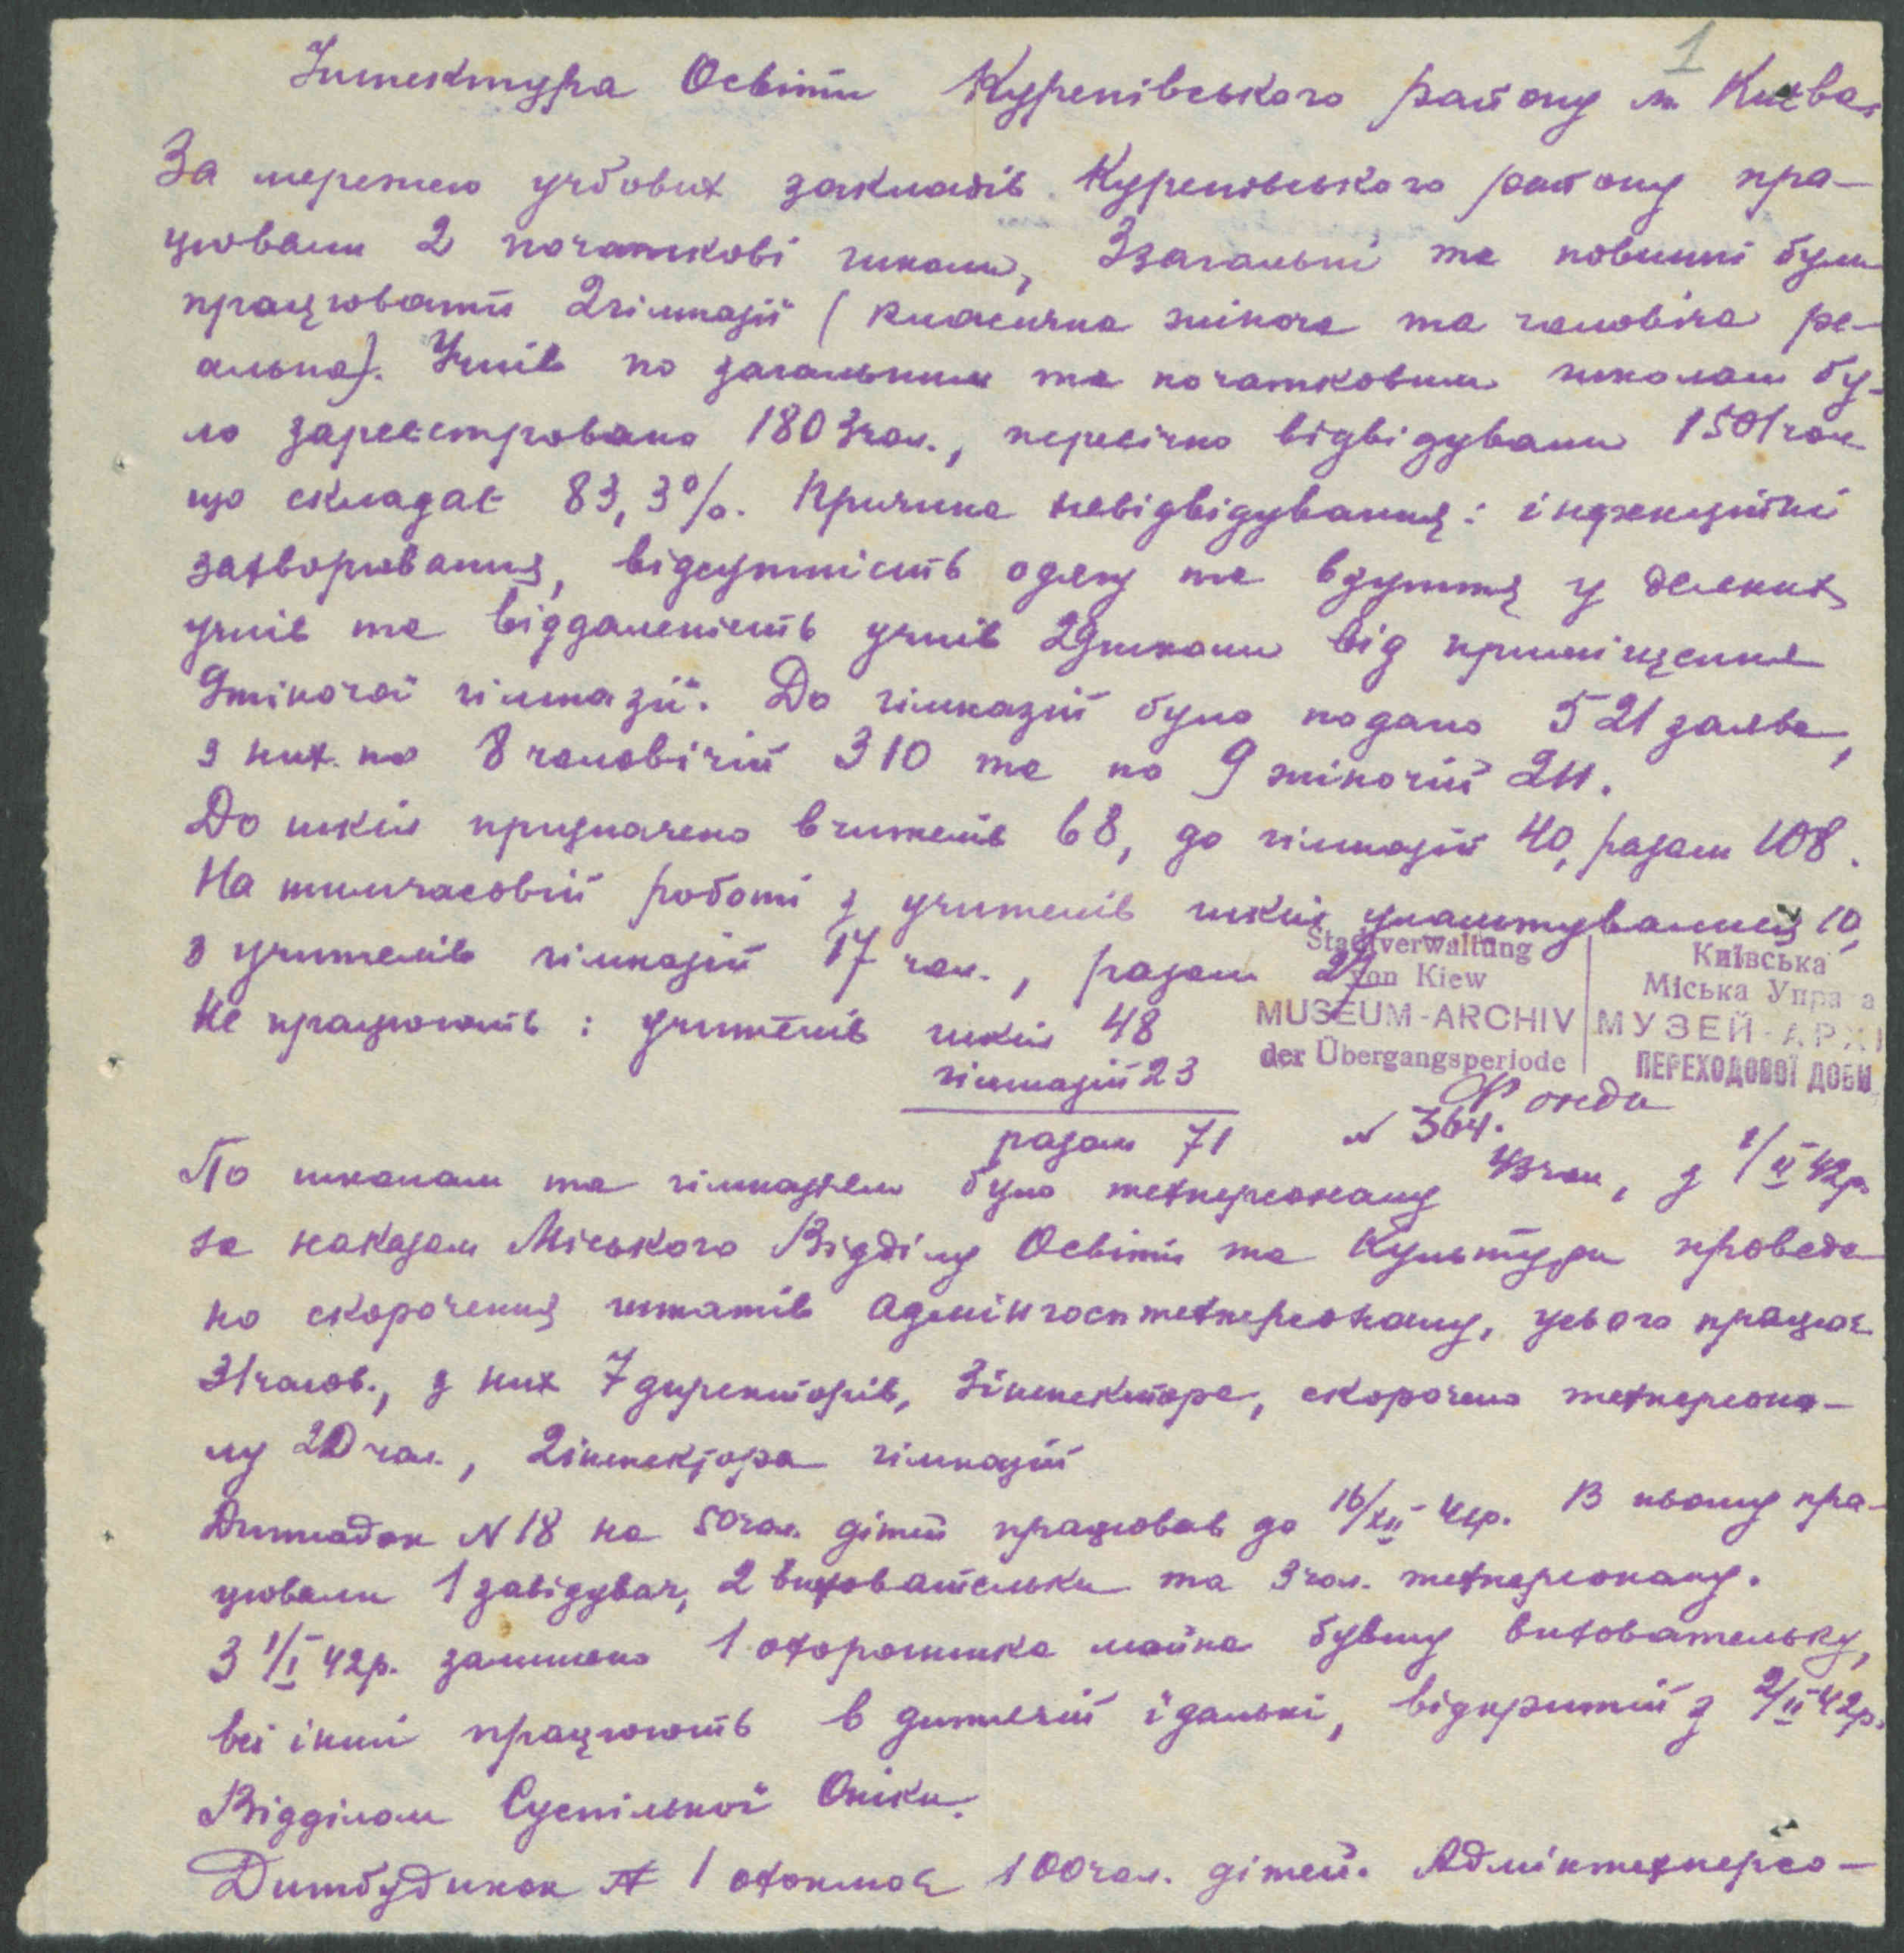 1
Інспектура Освіти Куренівського району м. Києва.
За мережею учбових закладів Куренівського району пра-
цювали 2 початкові школи, 3 загальні та повинні були
працювати 2 гімназії (класична жіноча та чоловіча ре-
альна). Учнів по загальним та початковим школам бу-
ло зареєстровано 1803 чол., пересічно відвідували 1501 чол.
що складає 83,3%. Причина невідвідування: інфекційні
захворювання, відсутність одягу та взуття у деяких
учнів та віддаленість учнів 29 школи від приміщення
9 жіночої гімназії. До гімназій було подано 521 заява,
з них по 8 чоловічій 310 та по 9 жіночій 211.
До шкіл призначено вчителів 68, до гімназій 40, разом 108.
На тимчасовій роботі з учителів шкіл улаштувались 10,
з учителів гімназій 17 чол., разом 27
Не працюють: учителів шкіл 48
гімназій 23
разом 71
Stadtverwaltung
von Kiew
MUSEUM-ARCHIV
der Übergangsperiode
Київська
Міська Управа
МУЗЕЙ-АРХІ
ПЕРЕХОДОВОЇ ДОБИ
Фонди
№ 364.
По школам та гімназіям було техперсоналу 43 чол., з 1/II 42р.
за наказом Міського Відділу Освіти та Культури проведе-
но скорочення штатів адмінгосптехперсоналу, усього працює
31 чолов., з них 7 директорів, 3 інспектора, скорочено техперсона-
лу 20 чол., 2 інспектора гімназій
Дитсадок №18 на 50 чол. дітей працював до 16/XII 41р. В ньому пра-
цювали 1 завідувач, 2 вихователки та 3 чол. техперсоналу.
З 1/I 42р. залишено 1 охоронника майна бувшу виховательку,
всі інші працюють в дитячій їдальні, відкритій з 2/II 42р.
Відділом Суспільної Опіки.
Дитбудинок № 1 охоплює 100 чол. дітей. Адмінтехперсо-